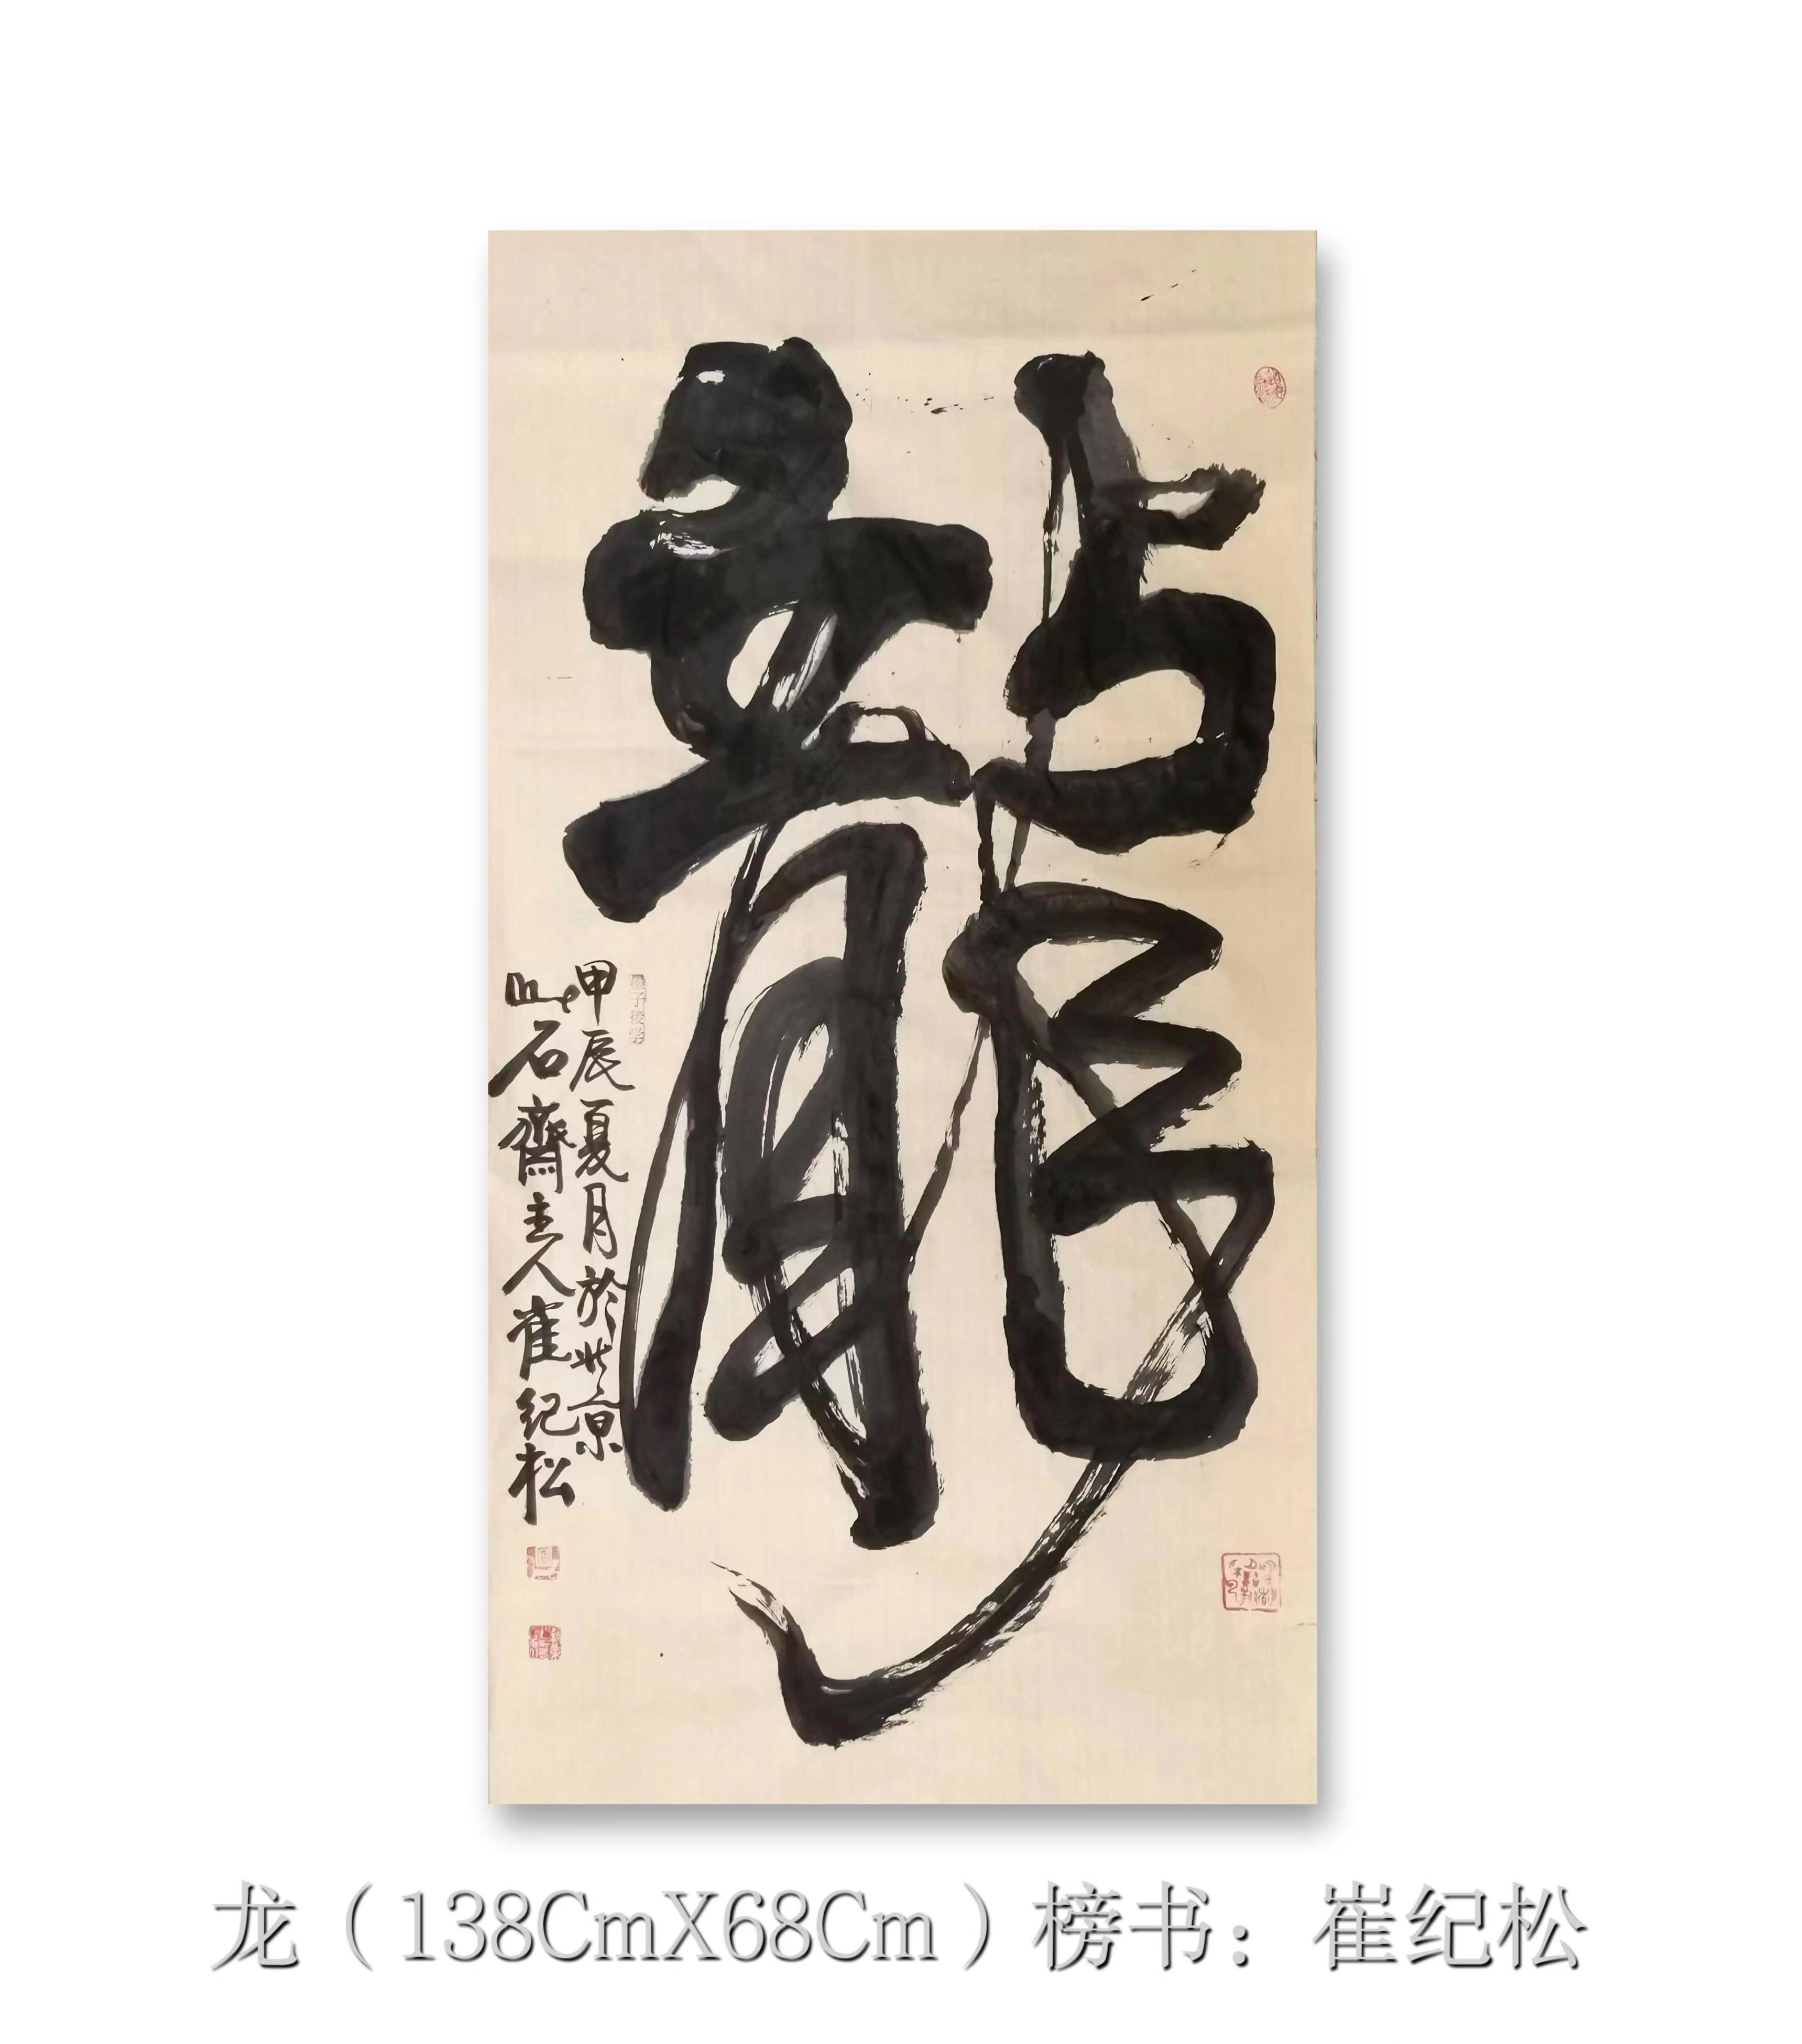 龍
甲辰夏月於北京
山石齋主人崔纪松
龙（138CmX68Cm）榜书：崔纪松